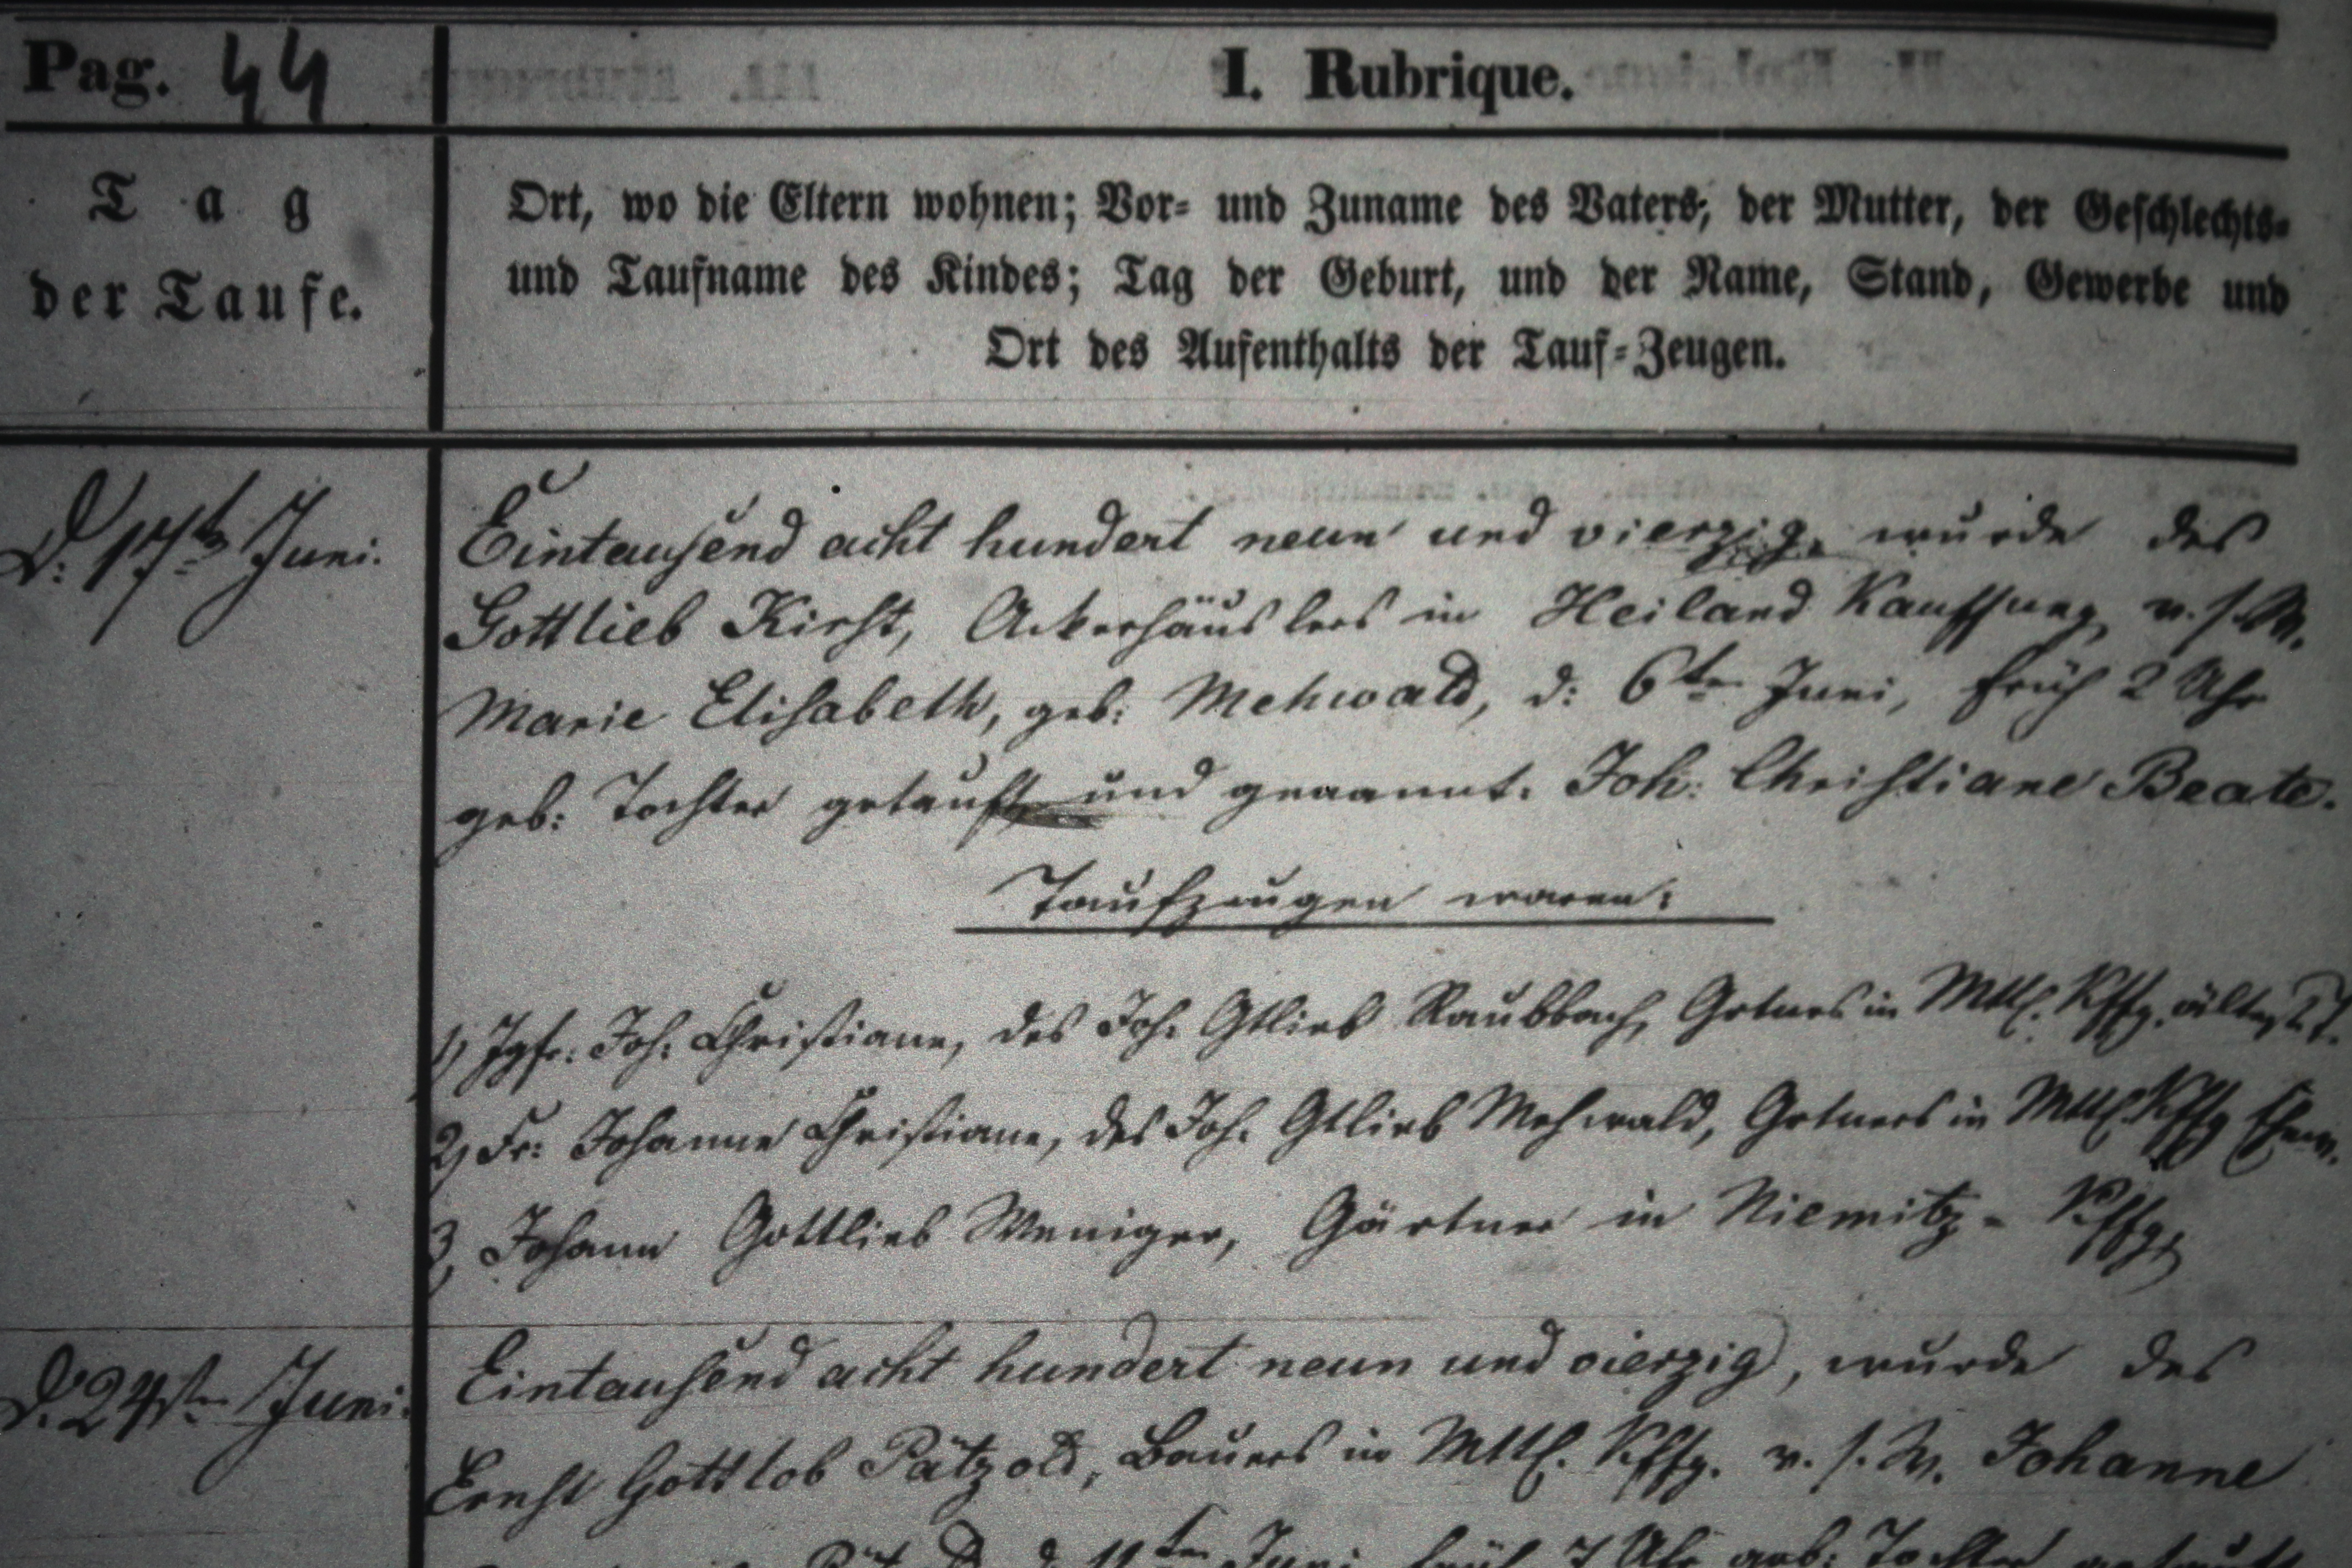 Pag. 44
I. Rubrique.
Tag
der Taufe.
Ort, wo die Eltern wohnen; Vor- und Zuname des Vaters, der Mutter, der Geschlechts-
und Taufname des Kindes; Tag der Geburt, und der Name, Stand, Gewerbe und
Ort des Aufenthalts der Tauf-Zeugen.
D. 17ten Juni.
Eintausend acht hundert neun und vierzig wurde des
Gottlieb Kirst, Ackerhäuslers in Heiland Kauffung v. s. W.
Marie Elisabeth, geb: Mehwald, d: 6ten Juni, früh 2 Uhr
geb: Tochter getauft und genannt. Joh: Christiane Beate.
Taufzeugen waren:
1) Jgfr: Joh. Christiane, des Joh. Gtlieb Raubbach, Grtners in Mttl. Kffg. ältest. T.
2) Fr: Johanne Christiane, des Joh. Gtlieb Mehwald, Grtners in Mttl. Kffg Ehew.
3, Johann Gottlieb Weniger, Gärtner in Niemitz-Kffg.
D. 24sten Juni.
Eintausend acht hundert neun und vierzig, wurde des
Ernst Gottlob Pätzold, Bauers in Mttl. Kffg. v. s. W. Johanne
d. 11ten Juni früh 7 Uhr geb: Tochter getauft